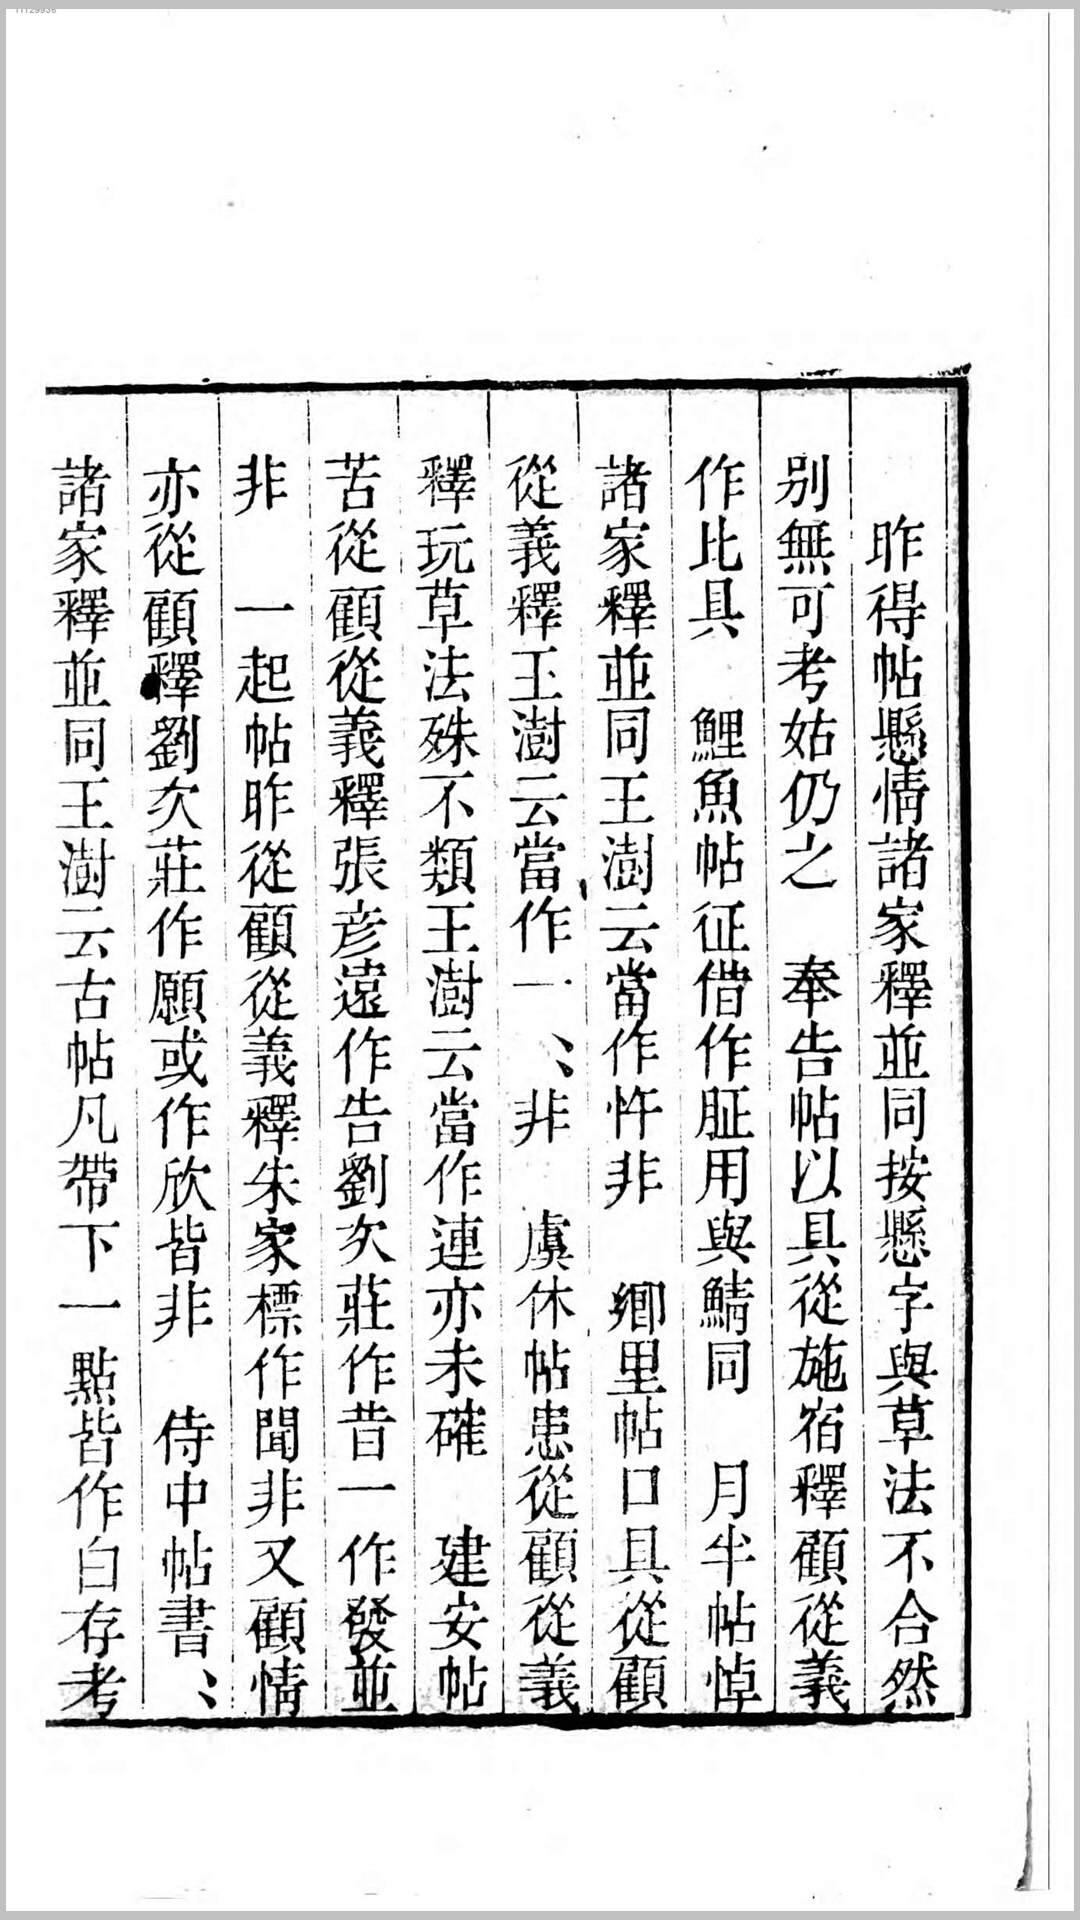 昨得帖懸情諸家釋並同按懸字與草法不合然
别無可考姑仍之　奉告帖以具從施宿釋顧從義
作比具　鯉魚帖征借作䏣用與鯖同　月半帖悼
諸家釋並同王澍云當作忤非　鄉里帖口具從顧
從義釋王澍云當作一丶丶非　虞休帖患從顧從義
釋玩草法殊不類王澍云當作連亦未確　建安帖
苦從顧從義釋張彦遠作告劉次莊作昔一作發並
非　一起帖昨從顧從義釋朱家標作聞非又顧情
亦從顧釋劉次莊作願或作欣皆非　侍中帖書丶丶
諸家釋並同王澍云古帖凡帶下一點皆作白存考